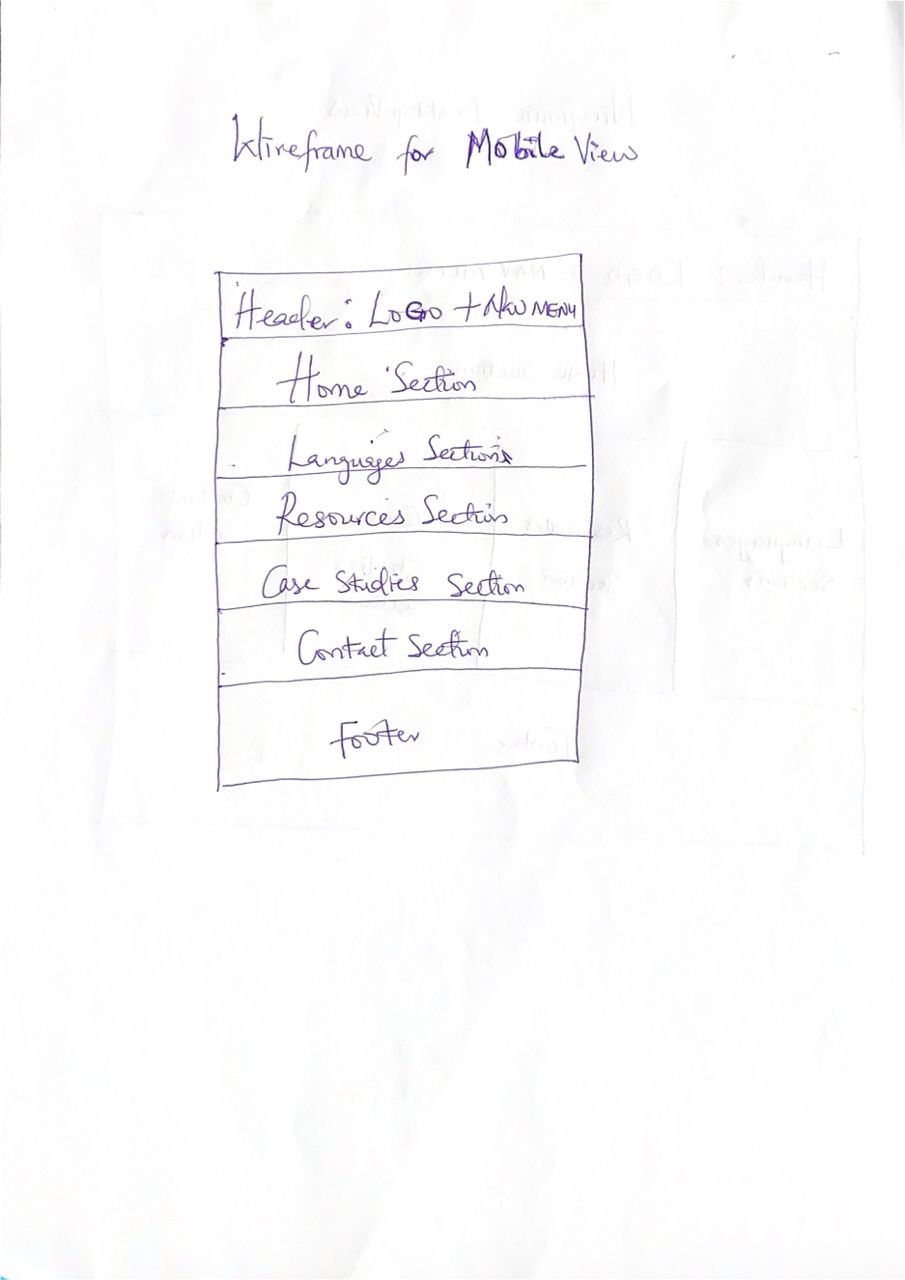 Wireframe for Mobile View
Header: LOGO + NAV MENU
Home Section
Languages Section
Resources Section
Case Studies Section
Contact Section
Footer